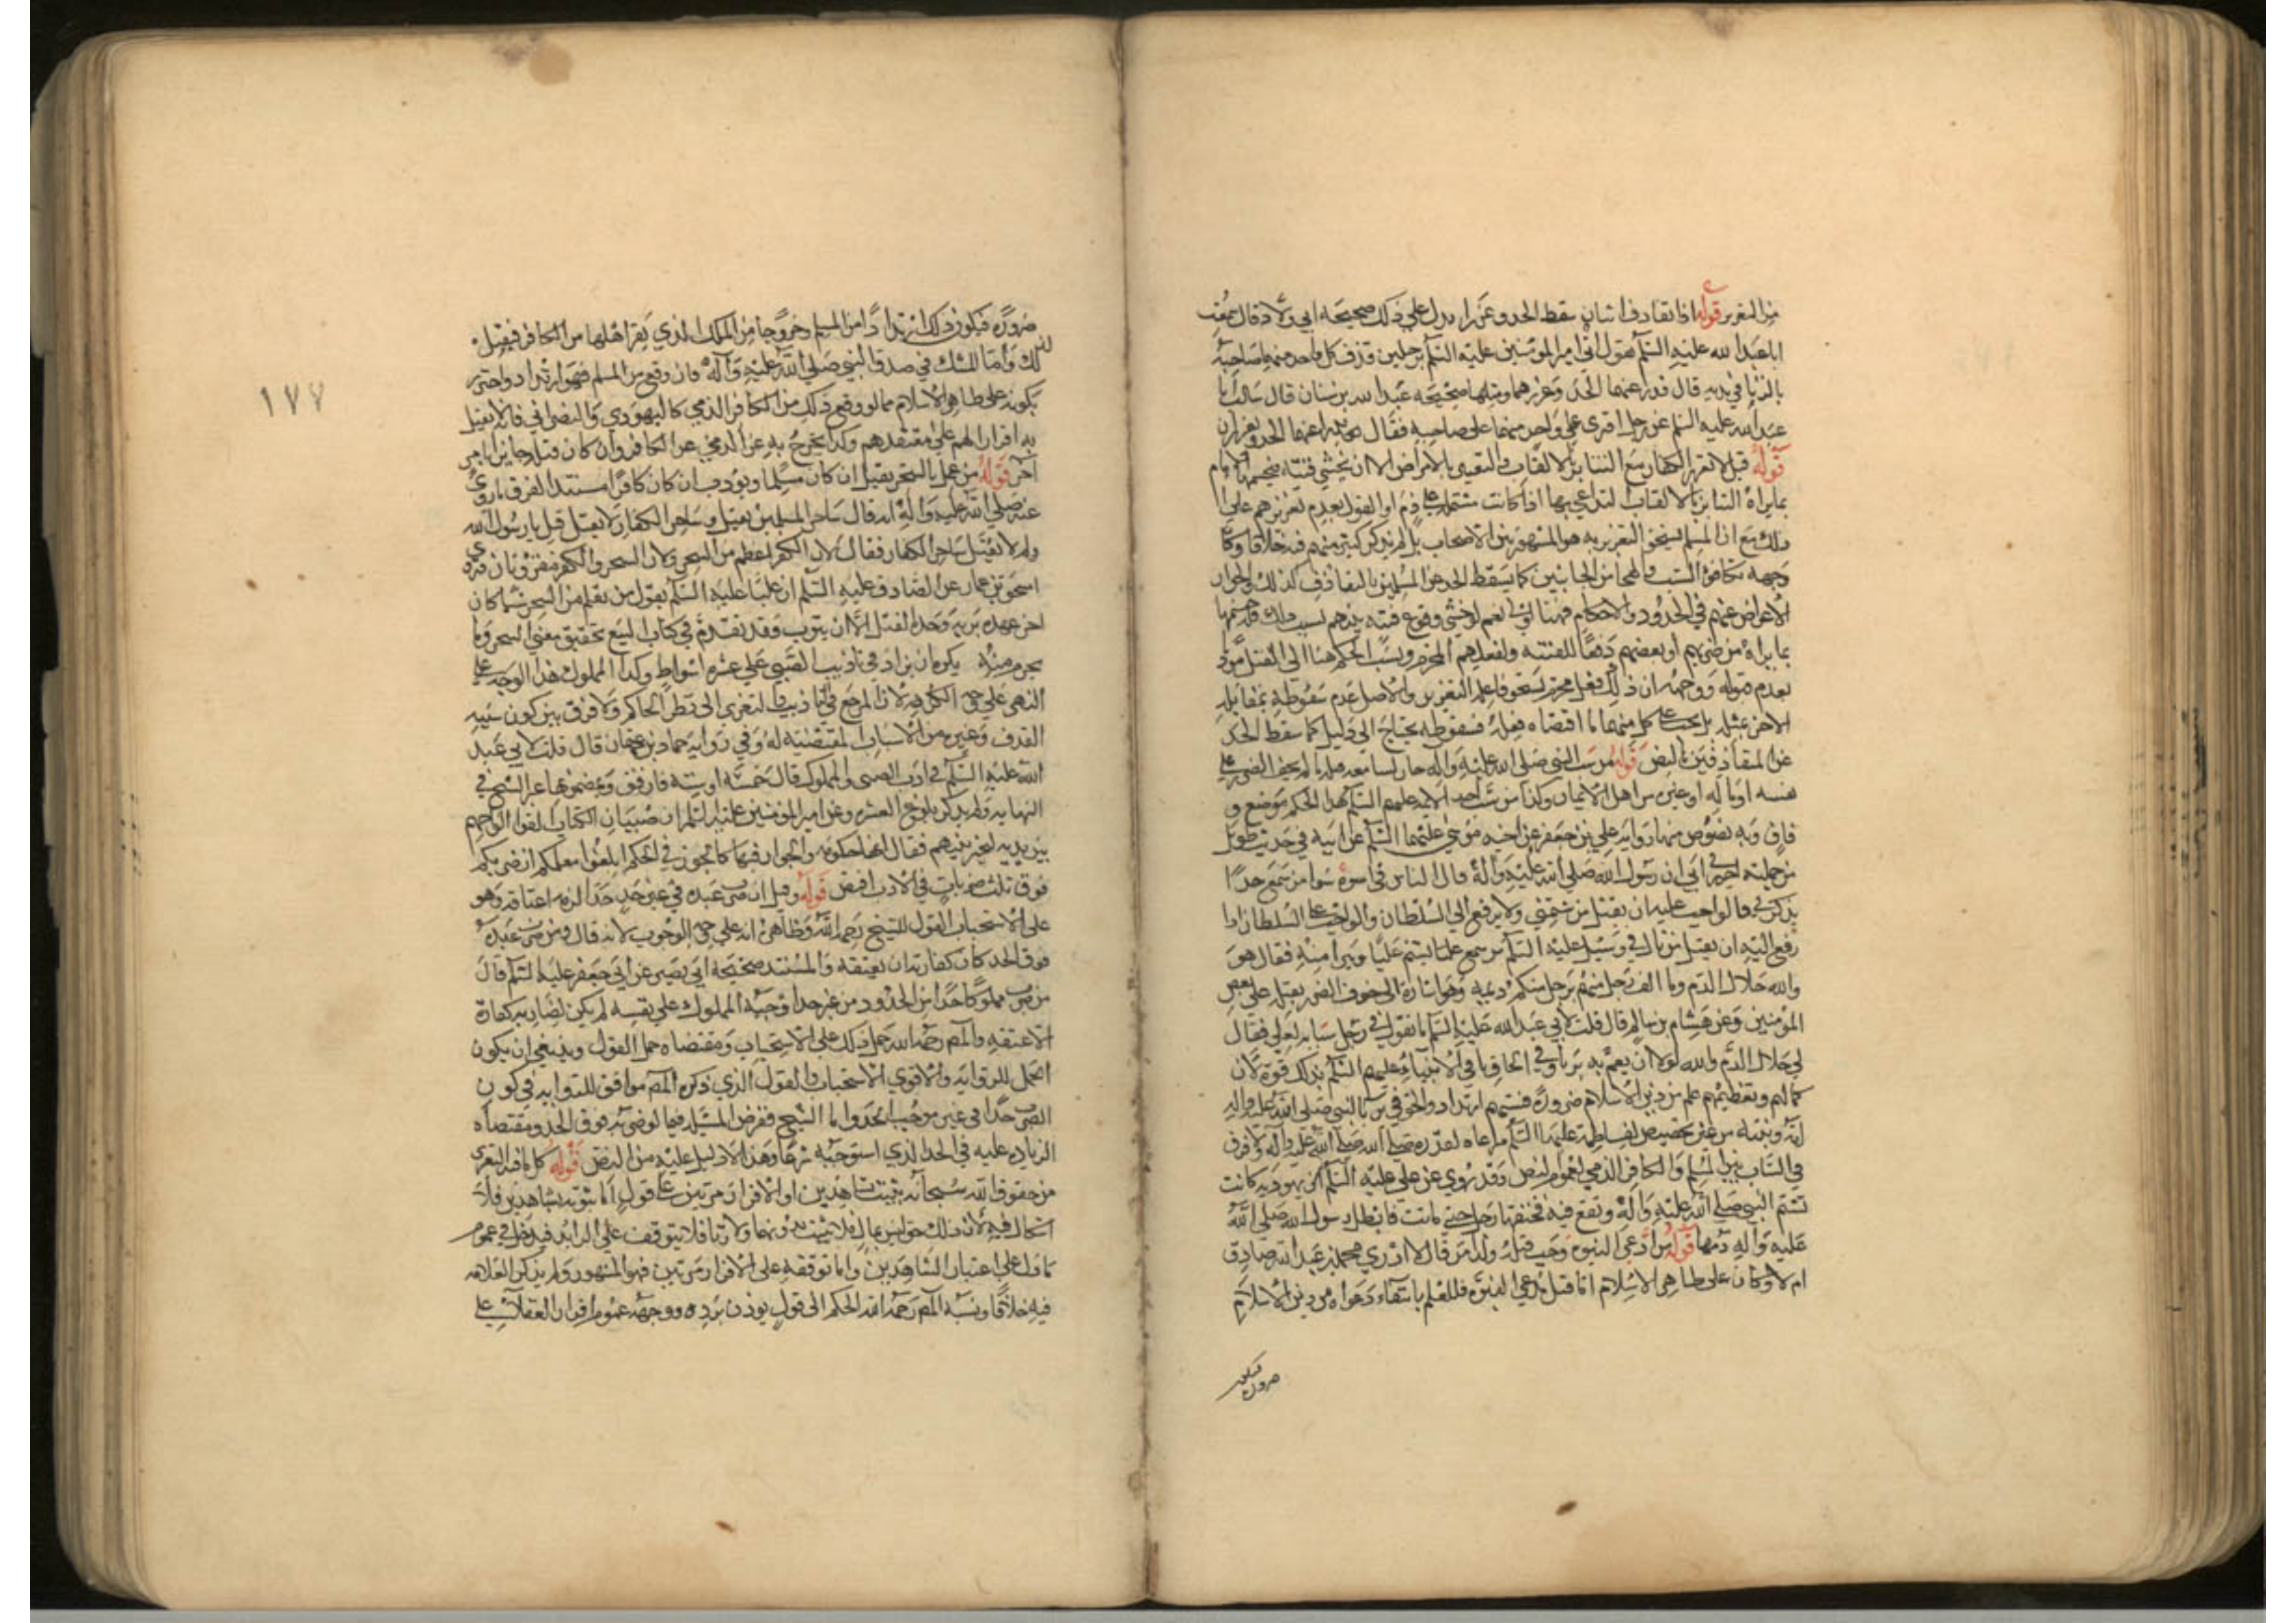 من التعزير قوله اذا تقاذف اثنان سقط الحد وعزرا يدل على ذلك صحيحة ابي ولاد قال سمعت
ابا عبد الله عليه السلم يقول اتي امير المؤمنين عليه السلم برجلين قذف كل واحد منهما صاحبه
بالزنا في بدنه قال فدرا عنهما الحد وعزرهما ومثلها صحيحة عبد الله بن سنان قال سالت ابا
عبد الله عليه السلم عن رجل افترى كل واحد منهما على صاحبه فقال يدرا عنهما الحد ويعزران
قوله قيل لا تعزر الكفار مع التنابز بالالقاب والتعيير بالامراض الا ان يخشى فتنة فيحسمها الامام
بما يراه التنابز بالالقاب التداعي بها اذا كانت مشتملة على ذم والقول بعدم تعزيرهم على
ذلك مع ان المسلم يستحق التعزير به هو المشهور بين الاصحاب بل لم يذكر كثير منهم فيه خلافا وكان
وجهه تكافؤ السب والهجاء من الجانبين كما يسقط الحد عن المسلمين بالتقاذف كذلك ولجواز
الاعراض عنهم في الحدود والاحكام فهنا اولى نعم لو خشي وقوع فتنة بينهم بسبب ذلك فله حسمها
بما يراه من ضربهم او بعضهم دفعا للفتنة ولفعلهم المحرم ونسب الحكم هنا الى القيل مؤذنا
بعدم قبوله ووجهه ان ذلك فعل محرم يستحق فاعله التعزير والاصل عدم سقوطه بمقابلة
الاخر بمثله بل يجب على كل منهما ما اقتضاه فعله فسقوطه يحتاج الى دليل كما سقط الحد
عن المتقاذفين بالنص قوله من سب النبي صلى الله عليه واله جاز لسامعه قتله ما لم يخف الضرر على
نفسه او ماله او غيره من اهل الايمان وكذا من سب احد الائمة عليهم السلم هذا الحكم موضع و
فاق وبه نصوص منها رواية علي بن جعفر عن اخيه موسى عليهما السلم عن ابيه في حديث طويل
من جملته اخبرني ابي ان رسول الله صلى الله عليه واله قال الناس في اسوة سوا من سمع احدا
يذكرني فالواجب عليه ان يقتل من شتمني ولا يرفع الى السلطان والواجب على السلطان اذا
رفع اليه ان يقتل من نال مني وسئل عليه السلم عمن سمع يشتم عليا ويبرا منه فقال هو
والله حلال الدم وما الف رجل منهم برجل منكم دعه وهو اشارة الى خوف الضرر بقتله على بعض
المؤمنين وعن هشام بن سالم قال قلت لابي عبد الله عليه السلم ما تقول في رجل سبابة لعلي فقال
لي حلال الدم والله لولا ان يعم به بريا وفي الحاق باقي الانبياء عليهم السلم بذلك قوة لان
كمالهم وتعظيمهم علم من دين الاسلام ضرورة فسبهم ارتداد والحق في بالنبي صلى الله عليه واله
امه وبنته من غير تخصيص بفاطمة عليها السلم مراعاة لقدره صلى الله عليه واله ولا فرق
في الساب بين المسلم والكافر الذمي لعموم النص وقد روي عن علي عليه السلم ان يهودية كانت
تشتم النبي صلى الله عليه واله وتقع فيه فخنقها رجل حتى ماتت فابطل رسول الله صلى الله
عليه واله دمها قوله من ادعى النبوة وجب قتله وكذا من قال لا ادري محمد بن عبد الله صادق
ام لا وكان على ظاهر الاسلام اما قتل مدعي النبوة فللعلم بانتفاء دعواه من دين الاسلام
ضرورة فيكون
١٧٧
ضرورة فيكون ذلك ارتدادا من المسلم وخروجا من الملل الذي يقر اهلها من الكافر فيقتل
لذلك واما الشك في صدق النبي صلى الله عليه واله فان وقع من المسلم فهو ارتداد واحترز
بكونه على ظاهر الاسلام عما لو وقع ذلك من الكافر الذمي كاليهودي والنصراني فانه لا يقتل
به اقرارا لهم على معتقدهم وكذا يخرج به غير الذمي عن الكافر وان كان قتله جائزا بامر
اخر قوله من عمل بالسحر يقتل ان كان مسلما ويؤدب ان كان كافرا مستند الفرق ما روي
عنه صلى الله عليه واله انه قال ساحر المسلمين يقتل وساحر الكفار لا يقتل قيل يا رسول الله
ولم لا يقتل ساحر الكفار فقال لان الكفر اعظم من السحر ولان السحر والكفر مقرونان وروى
اسحق بن عمار عن الصادق عليه السلم ان عليا عليه السلم يقول من تعلم من السحر شيئا كان
اخر عهده بربه وحده القتل الا ان يتوب وقد تقدم في كتاب البيع تحقيق معنى السحر وما
يحرم منه يكره ان يزاد في تاديب الصبي على عشرة اسواط وكذا المملوك هذا الوجه على
النهي على جهة الكراهة لان المرجع في التاديب والتعزير الى نظر الحاكم ولا فرق بين كون سببه
القذف وغيره من الاسباب المقتضية له وفي رواية حماد بن عثمان قال قلت لابي عبد
الله عليه السلم في ادب الصبي والمملوك قال خمسة او ستة فارفق وبمضمونها عبر الشيخ في
النهاية ولم يذكر بلوغ العشرة وعن امير المؤمنين عليه السلم ان صبيان الكتاب القوا الواحهم
بين يديه ليخير بينهم فقال انها حكومة والجور فيها كالجور في الحكم ابلغوا معلمكم ان ضربكم
فوق ثلث ضربات في الادب اقتص قوله وقيل ان ضرب عبده في غير حد حدا لزمه اعتاقه وهو
على الاستحباب القول للشيخ رحمه الله وظاهره انه على جهة الوجوب لانه قال ومن ضرب عبده
فوق الحد كان كفارته ان يعتقه والمستند صحيحة ابي بصير عن ابي جعفر عليه السلم قال
من ضرب مملوكا حدا من الحدود من غير حد اوجبه المملوك على نفسه لم يكن لضاربه كفارة
الا عتقه والمص رحمه الله حمل ذلك على الاستحباب ومقتضاه حمل القول وينبغي ان يكون
الحمل للرواية والاقوى الاستحباب والقول الذي ذكره المص موافق للرواية في كون
الضرب حدا في غير موجب الحد واما الشيخ ففرض المسئلة فيما لو ضربه فوق الحد ومقتضاه
الزيادة عليه في الحد الذي استوجبه شرعا وهذا لا دليل عليه من النص قوله كل ما فيه التعزير
من حقوق الله سبحانه يثبت بشاهدين او الاقرار مرتين على قول اما ثبوته بشاهدين فلا
اشكال فيه لان ذلك حق ليس بمال فلا يثبت بدونهما ولا زنا فلا يتوقف على الزائد فيدخل في عموم
ما دل على اعتبار الشاهدين واما توقفه على الاقرار مرتين فهو المشهور ولم يذكر العلامة
فيه خلافا ونسبة المص رحمه الله الحكم الى قول يوذن برده ووجهه عموم اقرار العقلاء على